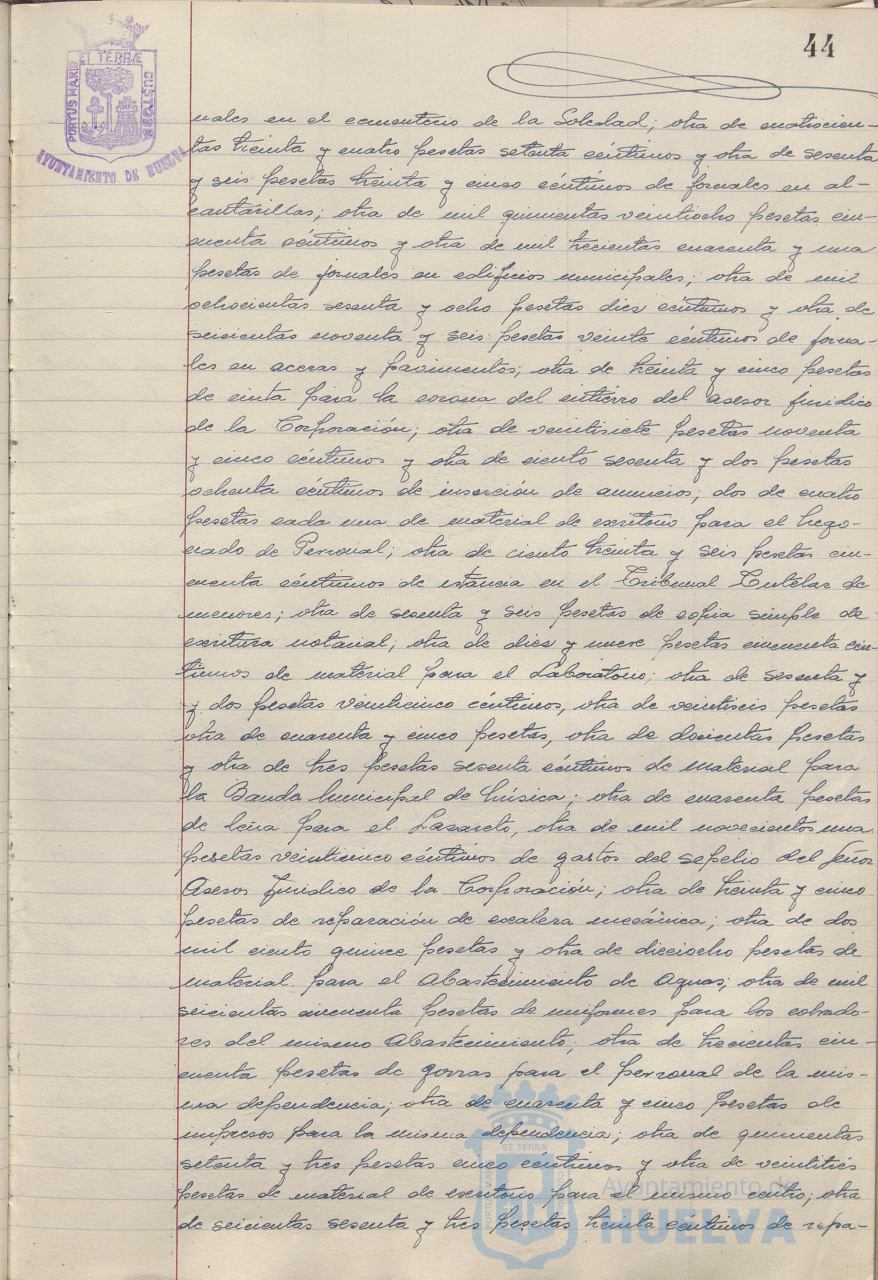 44
ET TERRÆ
PORTUS MARIS
CUSTODIA
AYUNTAMIENTO DE HUELVA
nales en el cementerio de la Soledad; otra de cuatrocien-
tas treinta y cuatro pesetas setenta céntimos y otra de sesenta
y seis pesetas treinta y cinco céntimos de jornales en al-
cantarillas; otra de mil quinientas veintiocho pesetas cin-
cuenta céntimos y otra de mil trecientas cuarenta y una
pesetas de jornales en edificios municipales; otra de mil
ochocientas sesenta y ocho pesetas diez céntimos y otra de
seicientas noventa y seis pesetas veinte céntimos de jorna-
les en aceras y pavimentos; otra de treinta y cinco pesetas
de cinta para la corona del entierro del asesor jurídico
de la Corporación; otra de veintisiete pesetas noventa
y cinco céntimos y otra de ciento sesenta y dos pesetas
ochenta céntimos de inserción de anuncios; dos de cuatro
pesetas cada una de material de escritorio para el Nego-
ciado de Personal; otra de ciento treinta y seis pesetas cin-
cuenta céntimos de estancia en el Tribunal Tutelar de
menores; otra de sesenta y seis pesetas de copia simple de
escritura notarial; otra de diez y nueve pesetas cincuenta cén-
timos de material para el Laboratorio; otra de sesenta y
y dos pesetas veinticinco céntimos, otra de veintiseis pesetas
otra de cuarenta y cinco pesetas, otra de docientas pesetas
y otra de tres pesetas sesenta céntimos de material para
la Banda Municipal de Música; otra de cuarenta pesetas
de leña para el Lazareto, otra de mil novecientos una
pesetas veinticinco céntimos de gastos del sepelio del Señor
Asesor Jurídico de la Corporación; otra de treinta y cinco
pesetas de reparación de escalera mecánica; otra de dos
mil ciento quince pesetas y otra de dieciocho pesetas de
material para el Abastecimiento de Aguas; otra de mil
seicientas cincuenta pesetas de uniformes para los cobrado-
res del mismo Abastecimiento; otra de trecientas cin-
cuenta pesetas de gorras para el personal de la mis-
ma dependencia; otra de cuarenta y cinco pesetas de
impresos para la misma dependencia; otra de quinientas
setenta y tres pesetas cinco céntimos y otra de veintitrés
pesetas de material de escritorio para el mismo centro; otra
de seicientas sesenta y tres pesetas treinta céntimos de repa-
ET TERRÆ
Ayuntamiento de
HUELVA